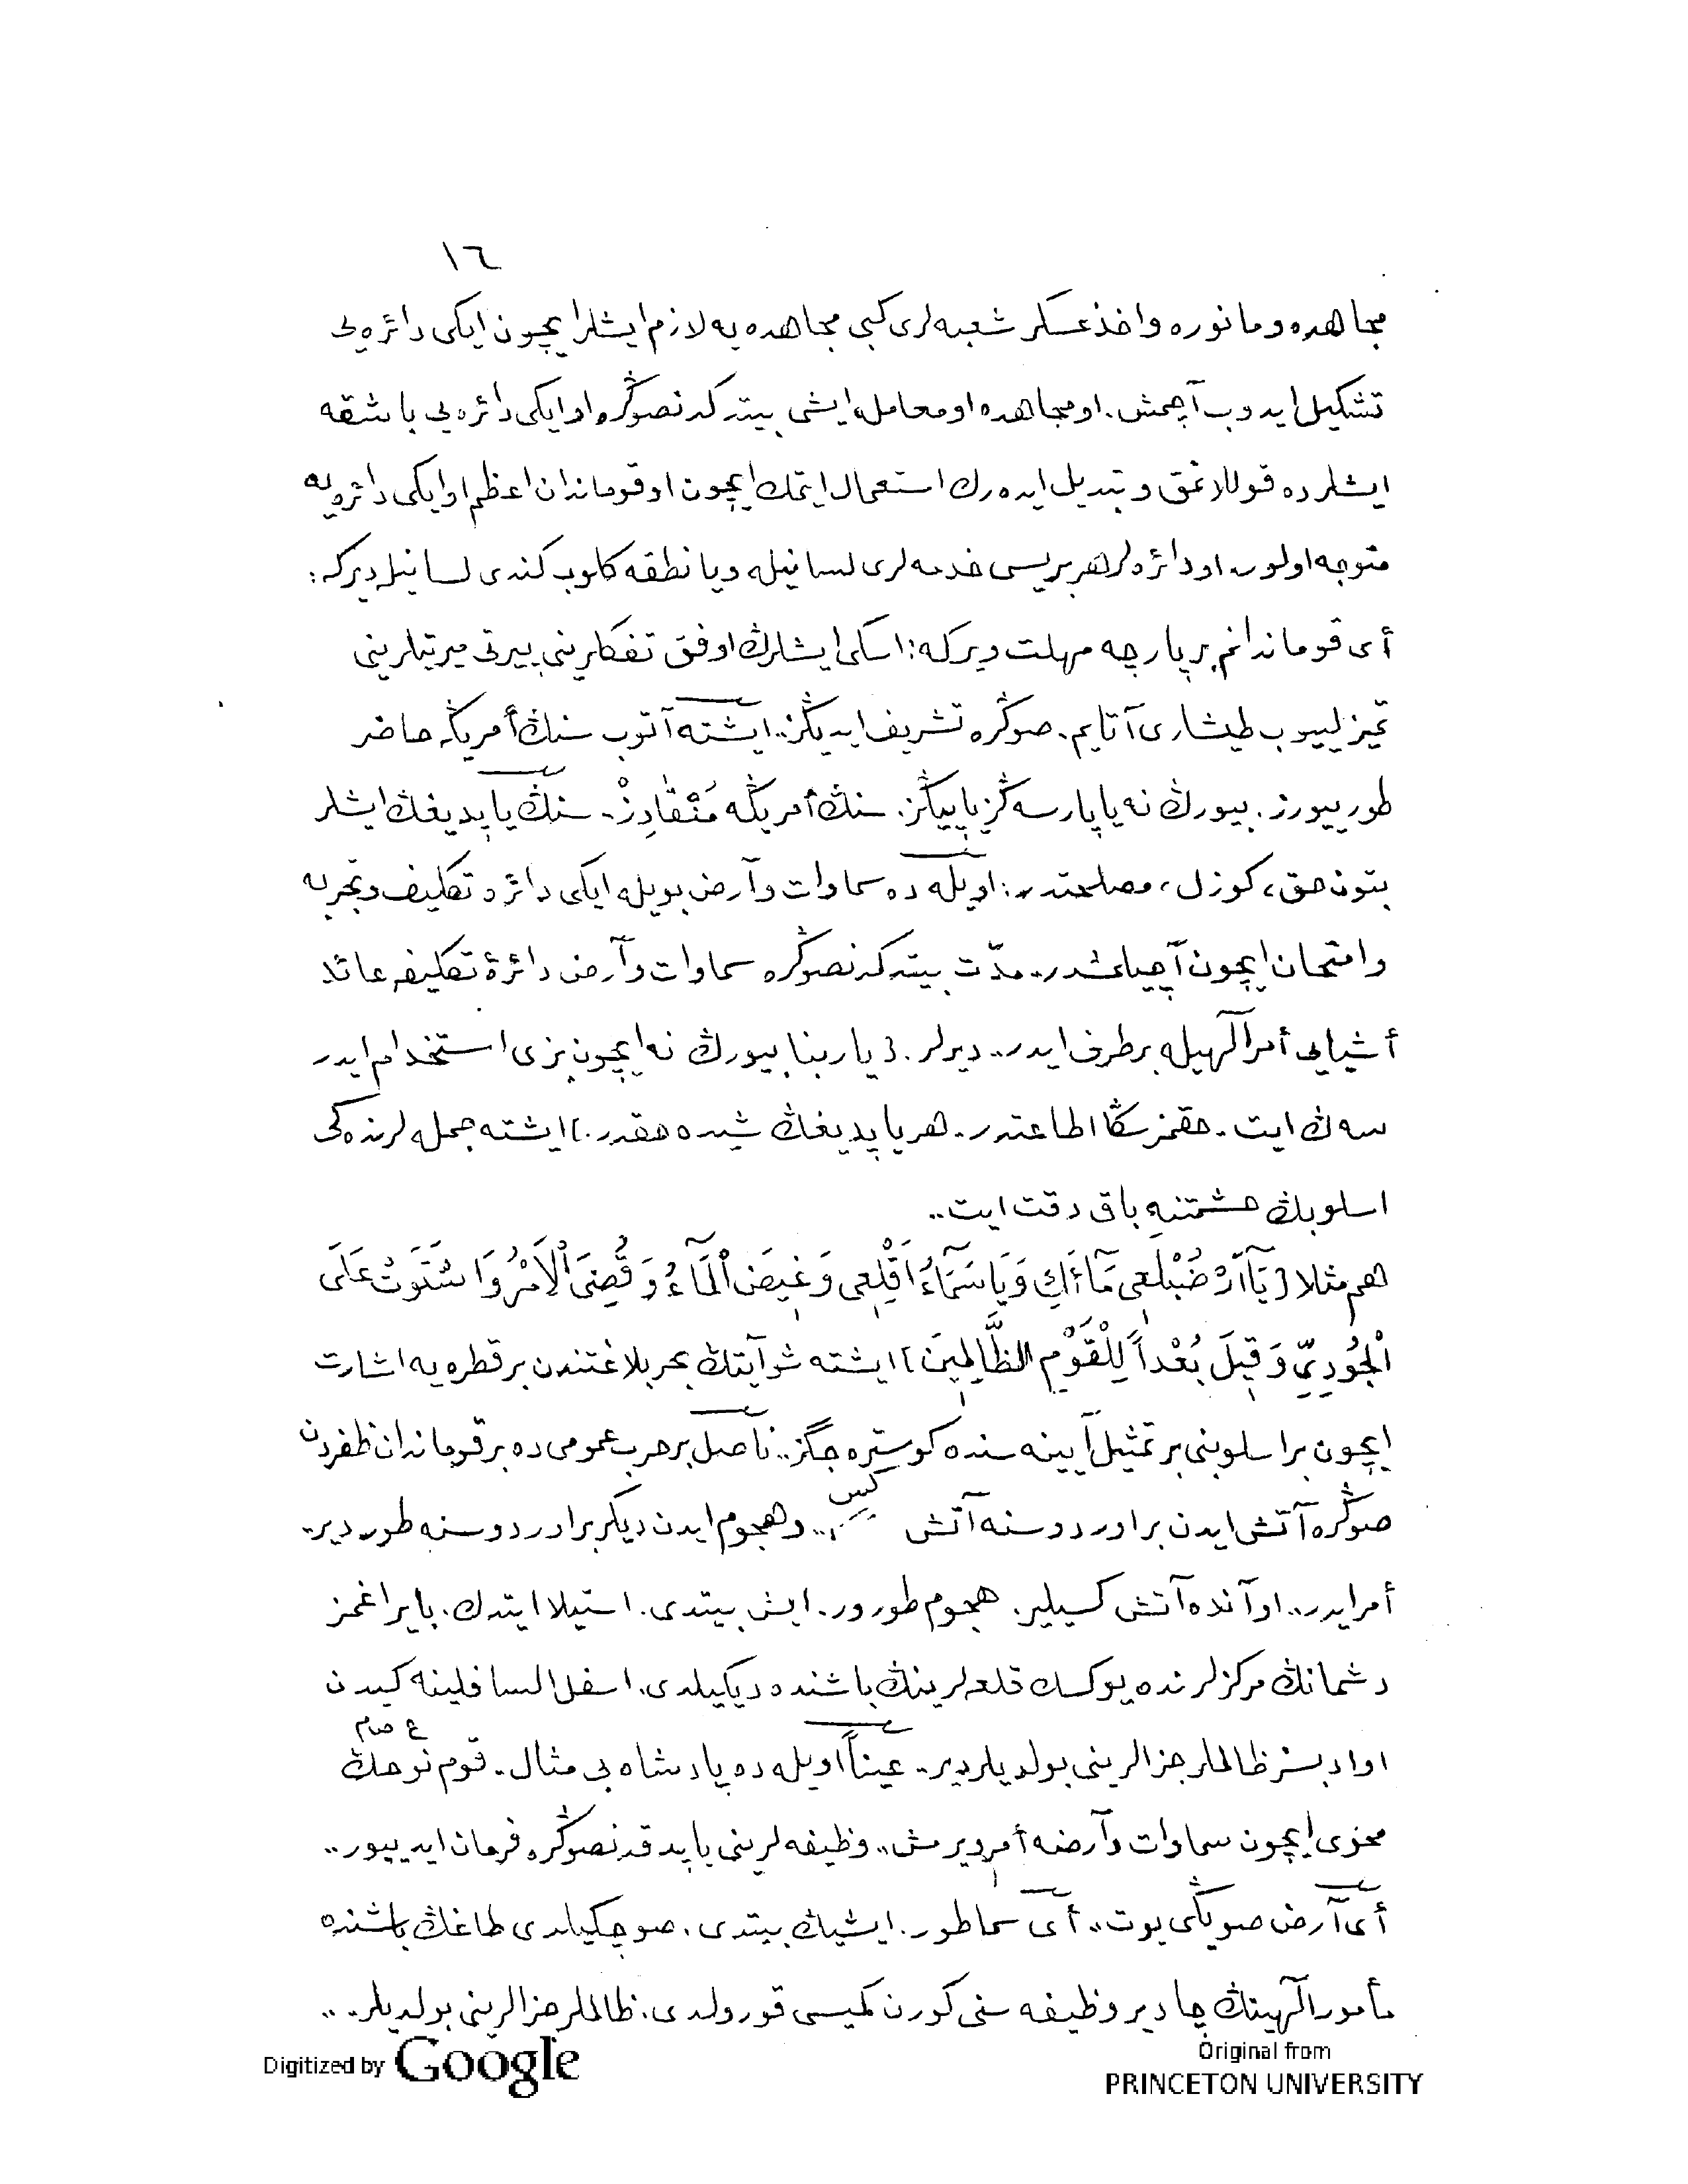 ١٦
مجاهده و مانوره و اخذ عسكر شعبه لرى كبى مجاهده يه لازم ايشلر ايچون ايكى دائره يى
تشكيل ايدوب آچمش. او مجاهده او معامله ايشى بيتدكدنصوڭره او ايكى دائره يى باشقه
ايشلرده قوللانمق و تبديل ايده رك استعمال ايتمك ايچون او قوماندان اعظم او ايكى دائره يه
متوجه اولور. او دائره لر هر بريسى خدمه لرى لسانيله ويا نطقه كلوب كندى لسانيله ديركه:
أى قوماندانم بر پارچه مهلت ويركه: اسكى ايشلرڭ اوفق تفكلرينى پيرتى ميرتيلرينى
تميزلييوب طيشارى آتايم. صوڭره تشريف ايديڭز.. ايشته آتوب سنڭ أمريڭه حاضر
طورييورز. بيورڭ نه ياپارسه ڭز ياپيڭز. سنڭ أمريڭه مُنْقَادِزْ. سنڭ ياپديغڭ ايشلر
بتون حق، كوزل، مصلحتدر: اويله ده سماوات و آرض بويله ايكى دائرۀ تكليف و تجربه
و امتحان ايچون آچيلمشدر. مدّت بيتدكدنصوڭره سماوات و آرض دائرۀ تكليفه عائد
أشيايى أمر آلٓهيله برطرف ايدر.. ديرلر. [ياربنا بيورڭ نه ايچون بزى استخدام ايدر
سه ڭ ايت. حقمز سڭا اطاعتدر. هر ياپديغڭ شيده حقدر.] ايشته جمله لرنده كى
اسلوبڭ حشمتنه باق دقت ايت..
هم مثلا [يَآاَرْضُ ابْلَعِى مَآءَكِ وَيَا سَمَآءُ اَقْلِعِى وَغِيضَ الْمَآءُ وَقُضِىَ الْاَمْرُ وَاسْتَوَتْ عَلَى
الْجُودِىِّ وَقِيلَ بُعْداً لِلْقَوْمِ الظَّالِمِينَ] ايشته شو آيتڭ بحر بلاغتندن بر قطره يه اشارت
ايچون بر اسلوبنى بر تمثيل آيينه سنده كوستره جگز.. ناصل بر حرب عمومى ده بر قوماندان ظفردن
صوڭره آتش ايدن بر اوردوسنه آتش كيس.. و هجوم ايدن ديكر بر اوردوسنه طور دير.
أمر ايدر.. او آنده آتش كسيلير. هجوم طورور. ايش بيتدى. استيلا ايتدك. بايراغمز
دشمانڭ مركزلرنده يوكسك قلعه لرينڭ باشنده ديكيلدى. اسفل السافلينه كيدن
او ادبسز ظالملر جزالرينى بولديلر دير. عيناً اويله ده پادشاه بى مثال. قوم نوحڭ ع صام
محوى ايچون سماوات و آرضه أمر ويرمش.. وظيفه لرينى ياپدقدنصوڭره فرمان ايدييور..
أى آرض صويڭى يوت.. أى سما طور. ايشيڭ بيتدى. صو چكيلدى طاغڭ باشنده
مأمور آلٓهينڭ چادير وظيفه سنى كورن كميسى قورولدى. ظالملر جزالرينى بولديلر..
Digitized by Google
Original from
PRINCETON UNIVERSITY